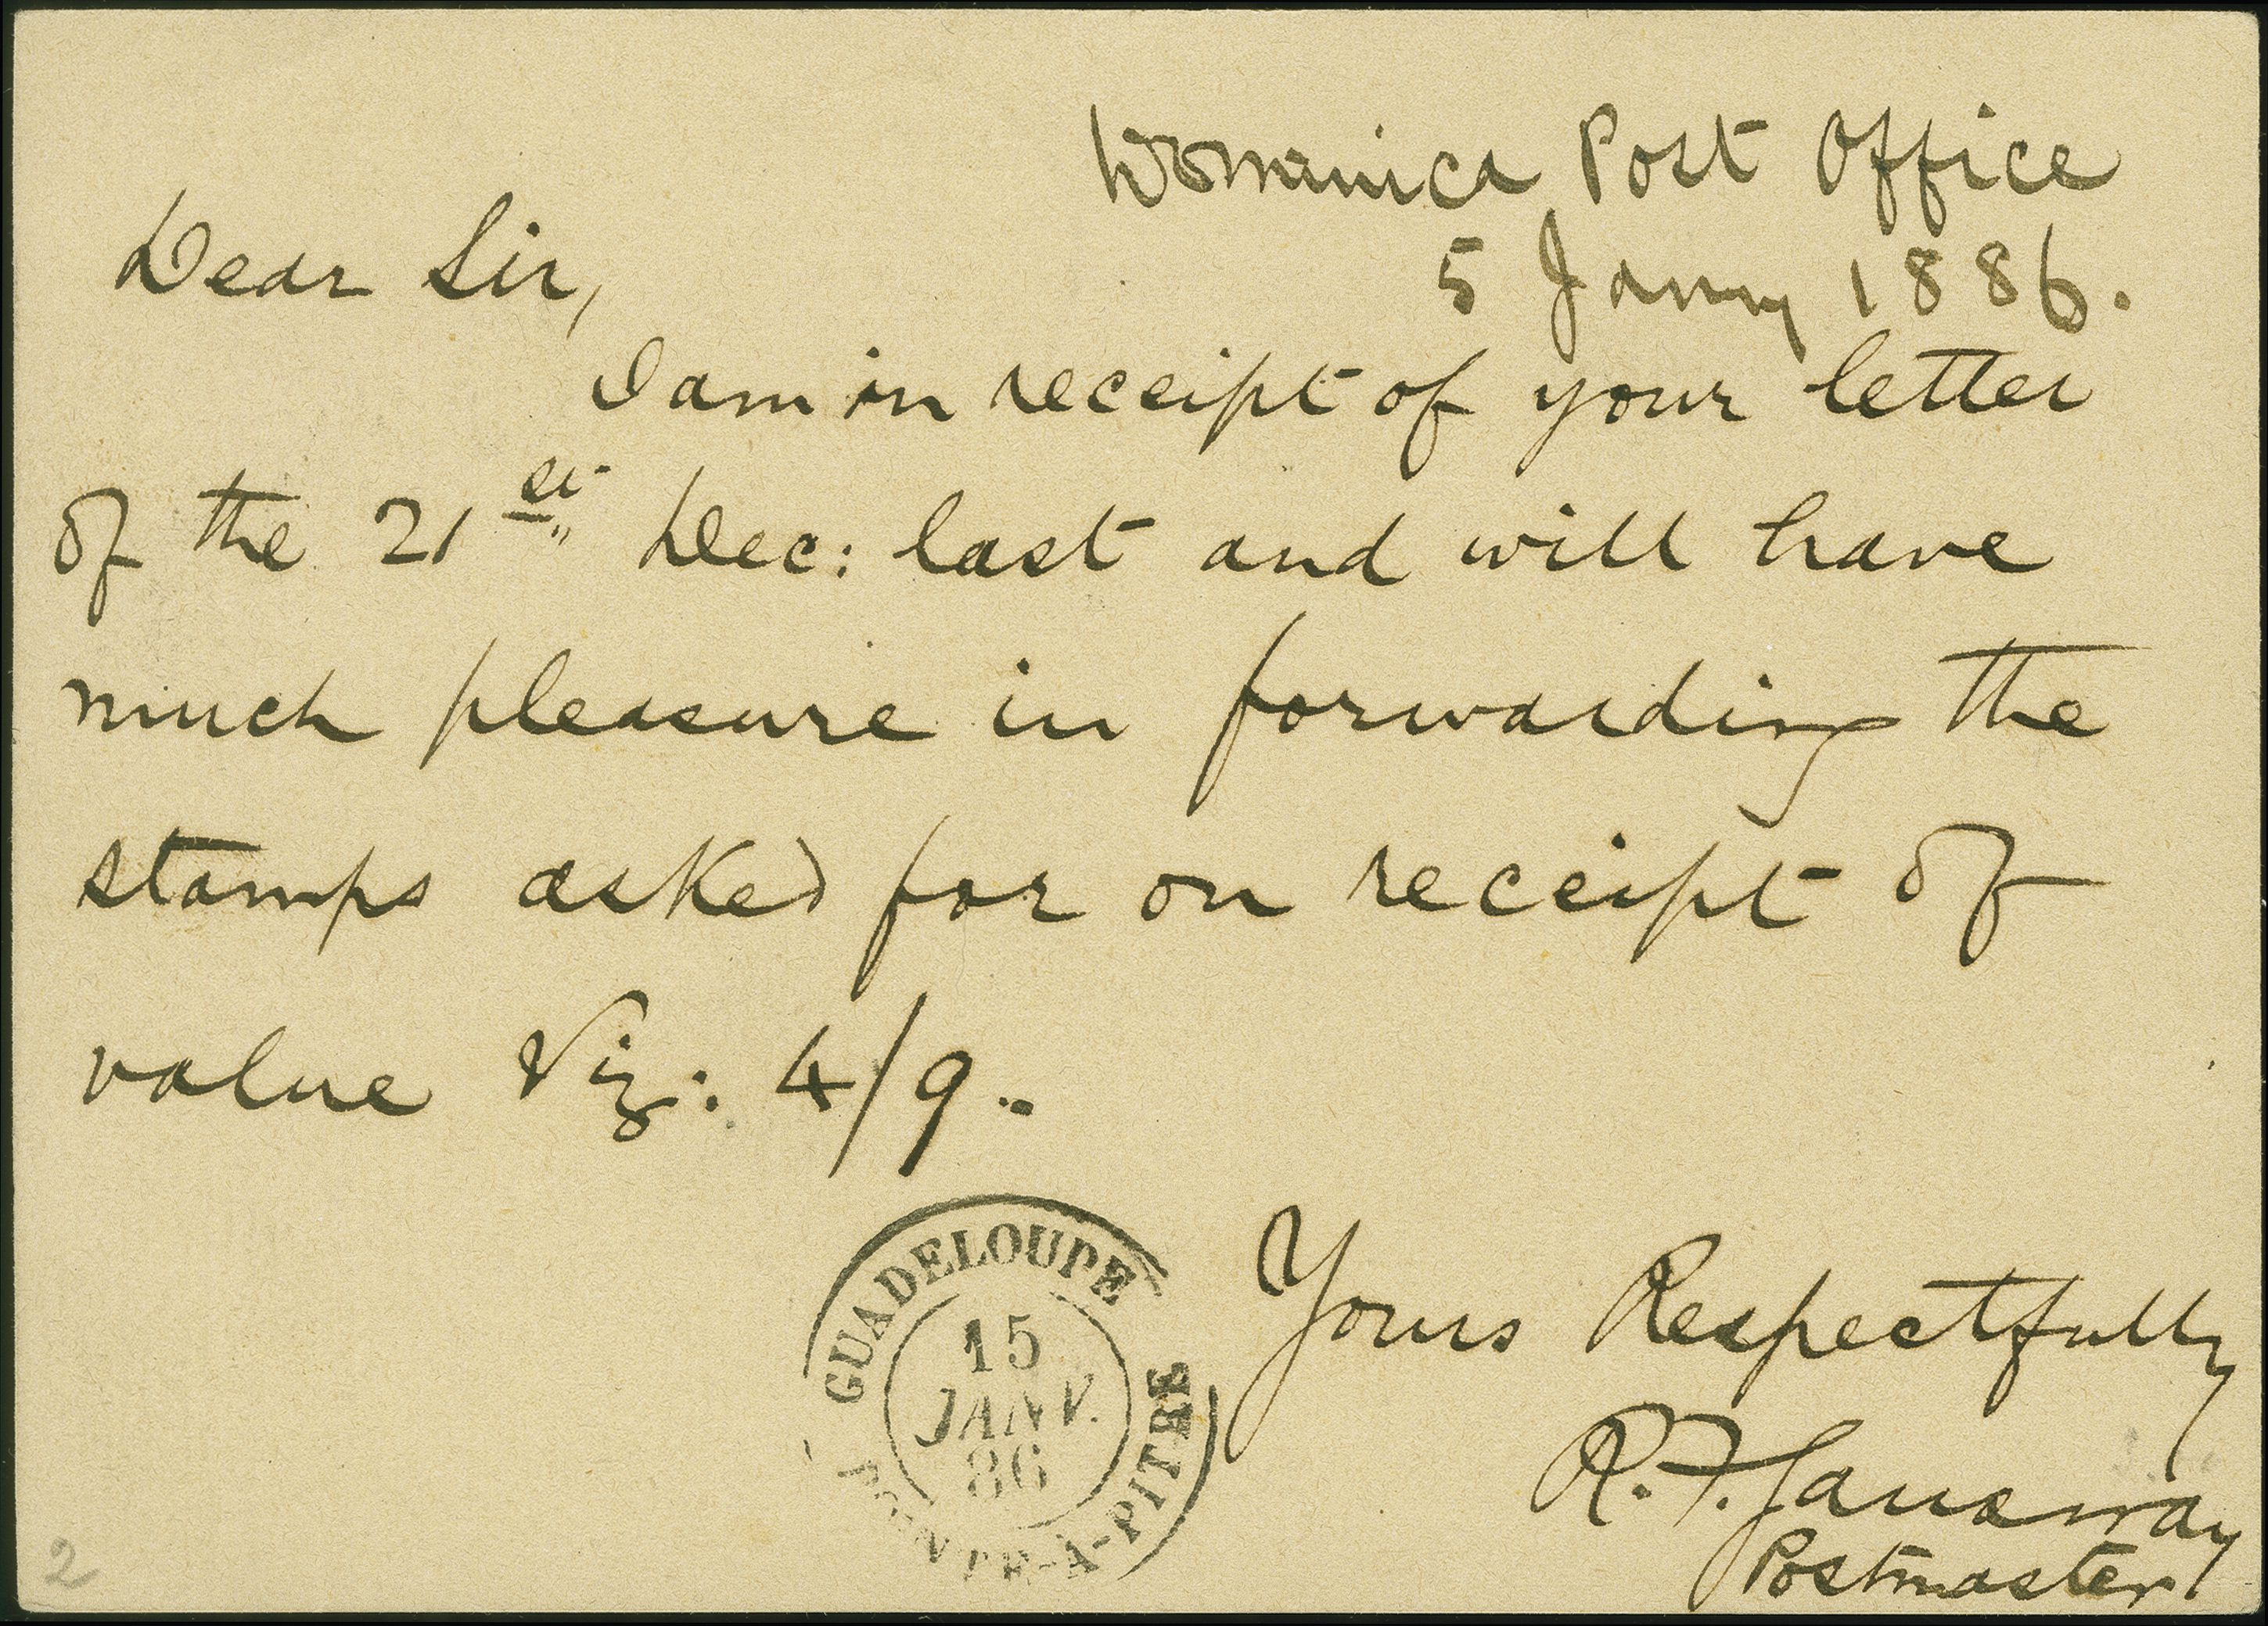 Dominica Post Office
5 Jany 1886.
Dear Sir,
I am in receipt of your letter
of the 21st Dec: last and will have
much pleasure in forwarding the
stamps asked for on receipt of
value Viz: 4/9..
Yours Respectfully
R. F. Garraway
Postmaster
GUADELOUPE
15
JANV.
86
POINTE-A-PITRE
2